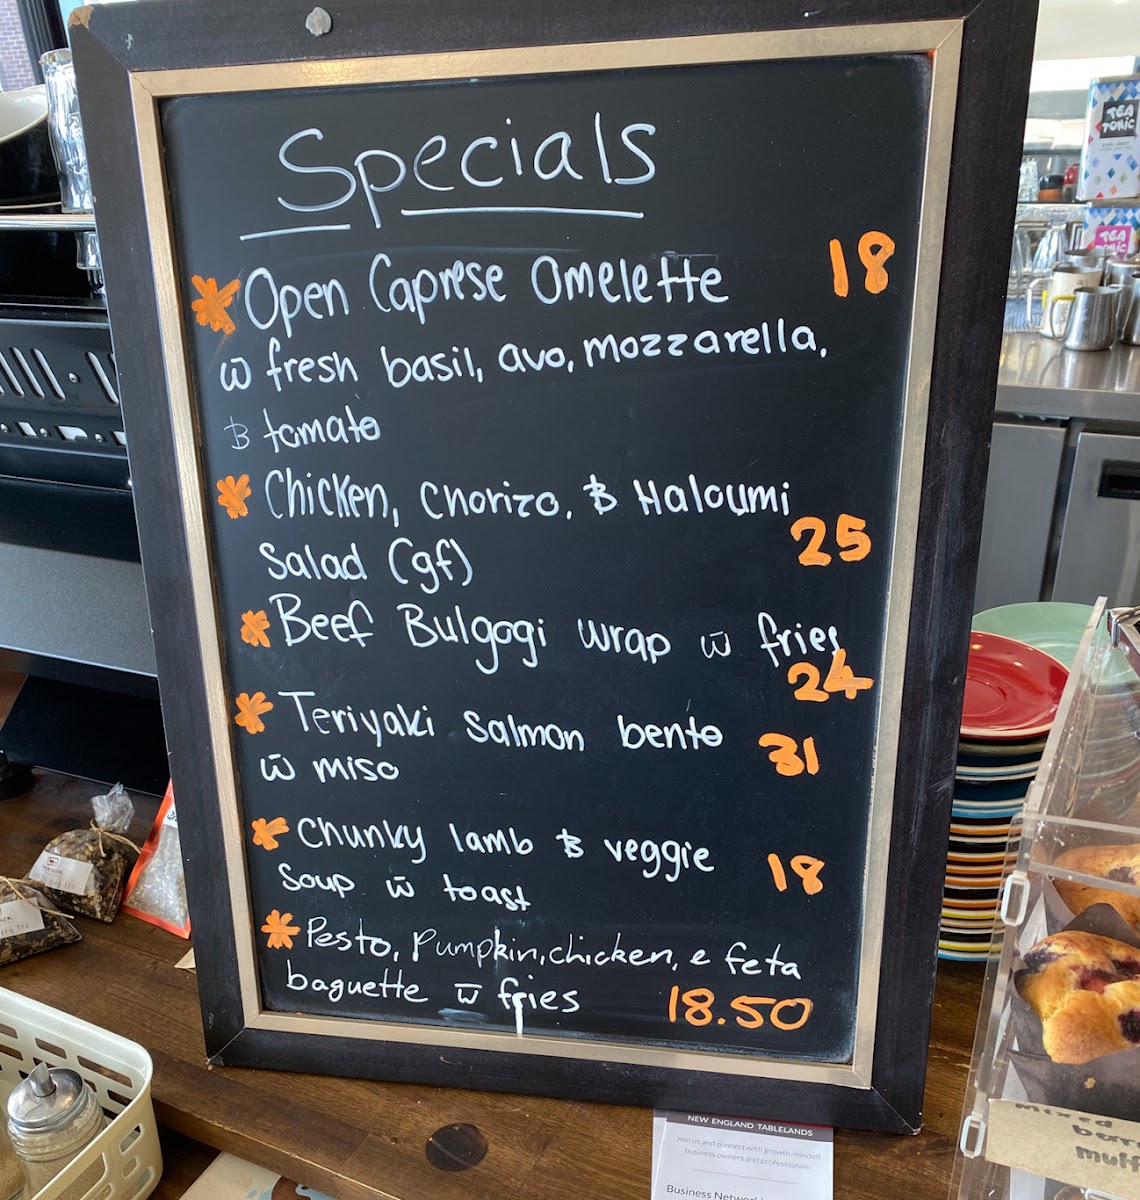 Specials
Open Caprese Omelette 18
w̄ fresh basil, avo, mozzarella,
& tomato
Chicken, Chorizo, & Haloumi
Salad (gf) 25
Beef Bulgogi wrap w̄ fries
24
Teriyaki salmon bento
w̄ miso 31
Chunky lamb & veggie
Soup w̄ toast 18
Pesto, Pumpkin, chicken, e feta
baguette w̄ fries 18.50
TEA
TONIC
EARL GREY
TEA
TONIC
NEW ENGLAND TABLELANDS
Join us and connect with growth-minded
business owners and professionals
Business Network
mixed